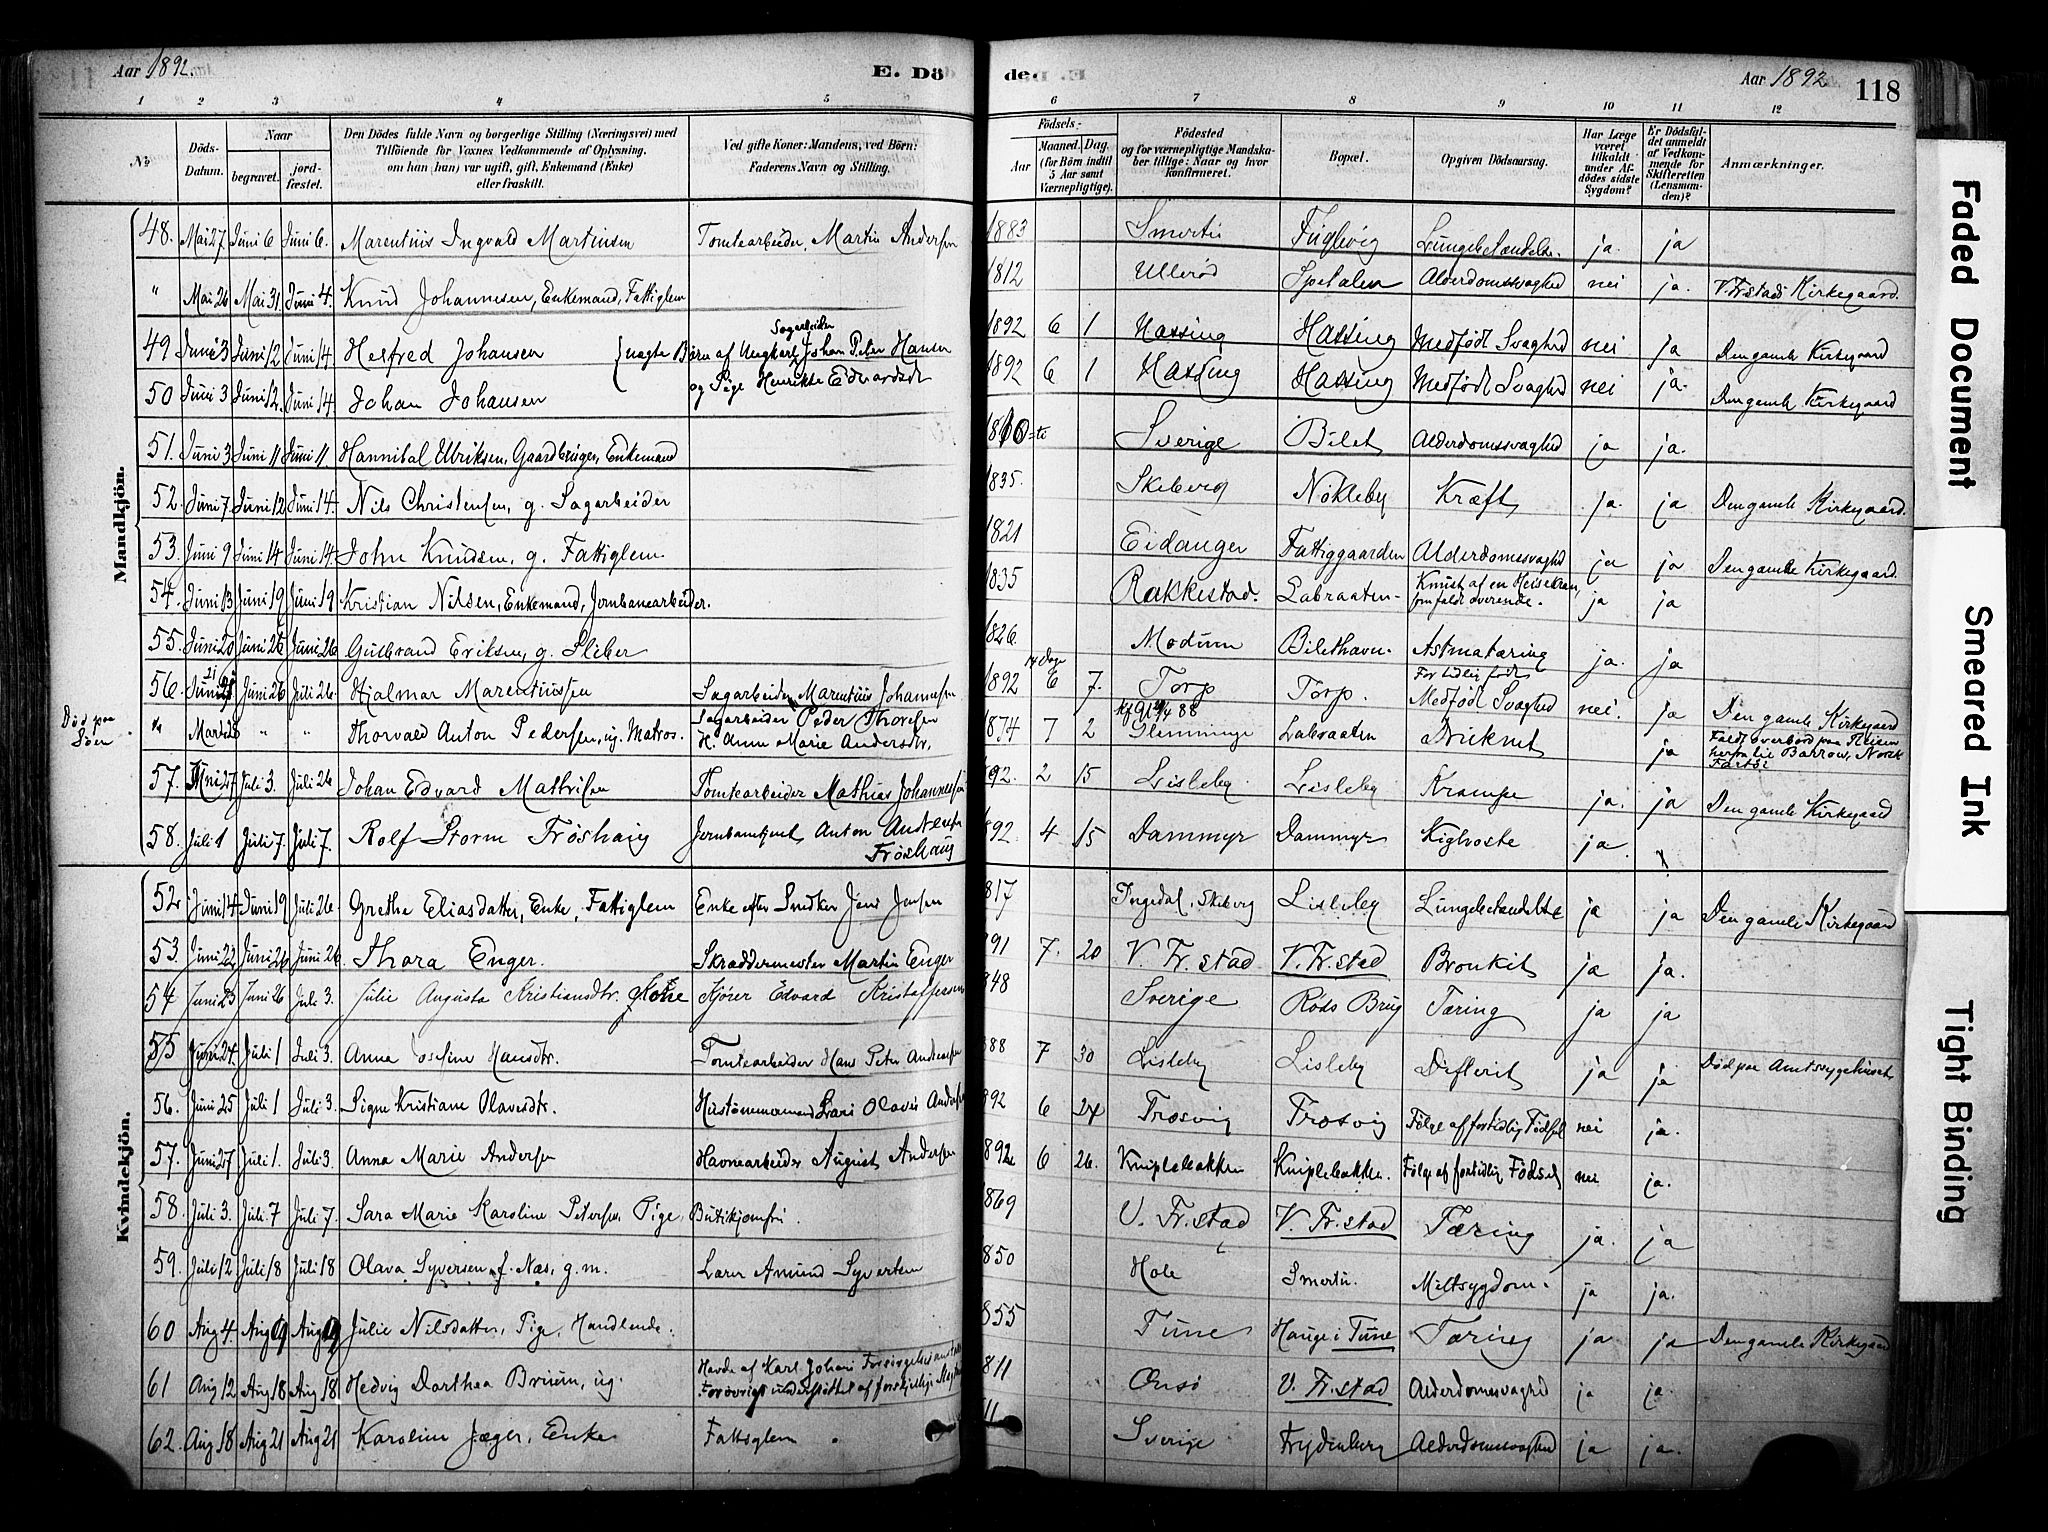 Aar 1892. E. Dö
de. Aar 1892 118
1 2 3 4 5
6 7 8 9 10 11 12
No Döds-Datum. Naar begravet. jordfæstet. Den Dödes fulde Navn og borgerlige Stilling (Næringsvei) med Tilföiende for Voxnes Vedkommende af Oplysning. om han (hun) var ugift, gift, Enkemand (Enke) eller fraskilt. Ved gifte Koner: Mandens, ved Börn: Faderens Navn og Stilling.
Födsels- Aar Maaned. Dag. (for Börn indtil 5 Aar samt Værnepligtige). Födested og for værnepligtige Mandskaber tillige: Naar og hvor Konfirmeret. Bopæl. Opgiven Dödsaarsag. Har Læge været tilkaldt under Afdödes sidste Sygdom? Er Dödsfaldet anmeldt af Vedkommende for Skifteretten (Lensmanden)? Anmærkninger.
Mandkjön.
48. Mai 27 Juni 6 Juni 6. Marentius Ingvald Martinsen Tomtearbeider, Martin Andersen 1883 Smertu Fuglevig Lungebetændelse. ja. ja
" Mai 26 Mai 31 Juni 4. Knud Johannesen, Enkemand, Fattiglem 1812 Ullerød Spetalen Alderdomssvaghed nei ja. V. Fr.stads Kirkegaard.
49 Juni 3 Juni 12 Juni 14 Helfred Johansen uægte Børn af Ungkarl Sagarbeider Johan Peter Hansen 1892 6 1 Hassing Hassing Medfødt Svaghed nei ja Den gamle Kirkegaard
50 Juni 3 Juni 12. Juni 14 Johan Johansen og Pige Henrikke Edvardsdt 1892 6 1 Hassing Hassing Medfødt Svaghed nei ja. Den gamle Kirkegaard
51. Juni 3 Juni 11 Juni 11. Hannibal Ulriksen, Gaardbruger, Enkemand Sverige Bilet Alderdomssvaghed ja ja.
52. Juni 7 Juni 12 Juni 14. Nils Christensen, g. Sagarbeider 1835. Skeberg Nökleby Kræft ja. ja Den gamle Kirkegaard.
53. Juni 9 Juni 14 Juni 14. John Knudsen, g. Fattiglem 1821 Eidanger Fattiggaarden Alderdomssvaghed ja ja Den gamle Kirkegaard.
54. Juni 13 Juni 19 Juni 19 Kristian Nilsen, Enkemand, Jernbanearbeider. 1835 Rakkestad. Labraaten Knust af en Heisekran, som faldt overende. ja ja
55. Juni 20 Juni 26 Juni 26 Gulbrand Eriksen, g. Sliber 1826. Modum Bilethavn. Astmatæring ja. ja
56. Juni 21 Juni 26 Juli 26. Hjalmar Marentiussen Sagarbeider Marentius Johannesen 1892 14 Dage 6 7. Torp Torp. For tidlig født Medfødt Svaghed nei. ja Den gamle Kirkegaard
Død paa Søen " Marts 28 " " Thorvald Anton Pedersen, ug. Matros. Sagarbeider Peder Thoresen H. Anne Marie Andersdtr. 1874 7 2 Glemminge Labraaten Druknet ja Faldt overbord paa Reisen herfra til Barrow, Norsk Fartöi
57. Juni 27 Juli 3. Juli 26 Johan Edvard Mathisen Tomtearbeider Mathias Johannessen 92. 2 15 Lisleby. Lisleby Krampe ja. ja Den gamle Kirkegaard
58. Juli 1 Juli 7. Juli 7. Rolf Storm Frøshaug Jernbanebetjent Anton Andersen Frøshaug 92. 4 15 Dammyr Dammyr Kighoste ja.
Kvindekjön.
52. Juni 14. Juni 19 Juli 26. Grethe Eliasdatter, Enke, Fattiglem Enke efter Snedker Jens Jensen 817 Ingedal, Skeberg Lisleby Lungebetændelse ja ja Den gamle Kirkegaard
53. Juni 22 Juni 26 Juni 26. Thora Enger. Skræddermester Martin Enger 91 7. 20 V. Fr.stad V. Fr.stad Bronkit ja ja.
54 Juni 23 Juni 26 Juli 3. Julie Augusta Kristiansdtr. Kone Kjører Edvard Kristoffersen 848 Sverige Røds Brug Tæring ja ja
55 Juni 24. Juli 1 Juli 3. Anna Josefine Hansdtr. Tomtearbeider Hans Peter Andersen 888 7 30 Lisleby Lisleby Difterit ja ja Død paa Amtssygehuset
56. Juni 25 Juli 1 Juli 3. Signe Kristiane Olavesdtr. Hustømmermand Olavus Andersen 92 6 24 Trosvig Trosvig Følge af fortidlig Fødsel nei ja.
57. Juni 27 Juli 1. Juli 3. Anna Marie Andersen Havnearbeider August Andersen 892 6 26. Kniplebakken Kniplebakken. Følge af fortidlig Fødsel nei ja.
58. Juli 3. Juli 7 Juli 7. Sara Marie Karoline Petersen, Pige, Butikjomfru. 869 V. Fr.stad V. Fr.stad Tæring ja. ja
59. Juli 12 Juli 18 Juli 18 Olava Syversen f. Næs, g.m. Lærer Amund Syvertsen 850 Hole Smertu. Miltsygdom. ja ja.
60 Aug 4 Aug 9 Aug 9 Julie Nilsdatter, Pige, Handlende. 855 Tune Hauge i Tune Tæring ja ja Den gamle Kirkegaard
61 Aug 12 Aug 18 Aug 18 Hedvig Dorthea Bruun, ug. Havde af Karl Johans Forsørgelsesanstalt Forøvrigt understøttet af forskjellige 811 Onsö V. Fr.stad Alderdomssvaghed ja ja.
62. Aug 18 Aug 21 Aug 21 Karoline Jæger, Enke Fattiglem 11 Sverige Frydenberg Alderdomssvaghed ja ja.
Faded Document
Smeared Ink
Tight Binding